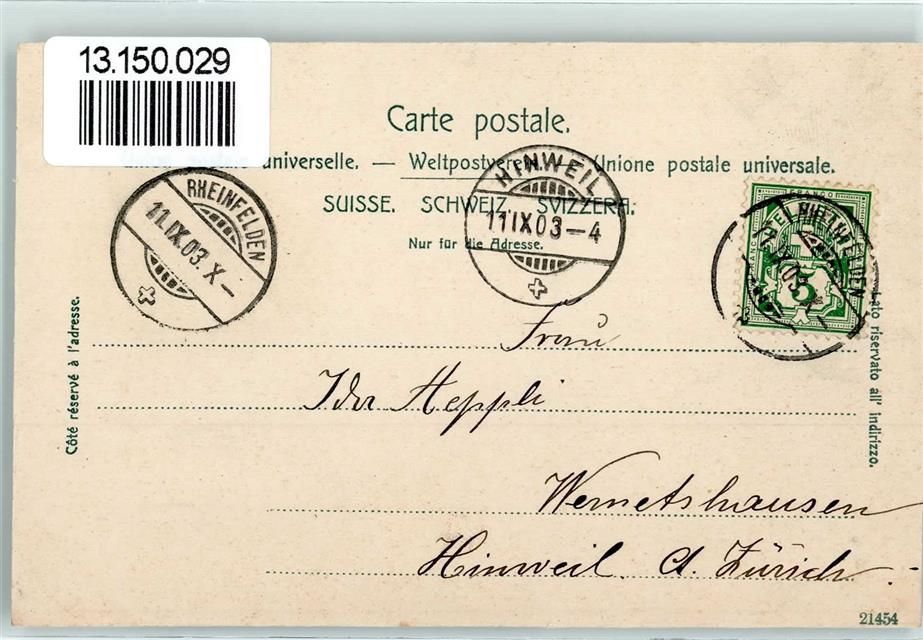 13.150.029
Carte postale.
universelle. — Weltpostverein. — Unione postale universale.
SUISSE. SCHWEIZ. SVIZZERA.
Nur für die Adresse.
RHEINFELDEN
11.IX.03.X–
HINWEIL
11 IX 03–4
FRANCO
RHEINFELDEN
5
Côté réservé à l'adresse.
Lato riservato all' indirizzo.
Frau
Ida Heppli
Wernetshausen
Hinweil. Ct. Zürich.
21454